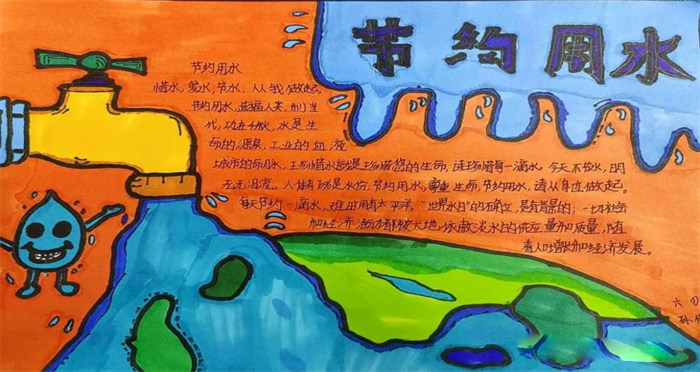 节约用水
节约用水
惜水、爱水、节水，从我做起。
节约用水，造福人类，利当
代，功在千秋，水是生
命的源泉，工业的血液
城市的命脉，珍惜水就是珍惜您的生命，请珍惜每一滴水。今天不节水，明
天无泪流。人体有的是水份，节约用水，尊重生命，节约用水，请从身边做起。
每天节约一滴水，难用用有太平洋。"世界水日"的确立，是有背景的；一切社会
和经济活动都极大地依赖淡水的供应量和质量，随
着人口增长和经济发展。
六